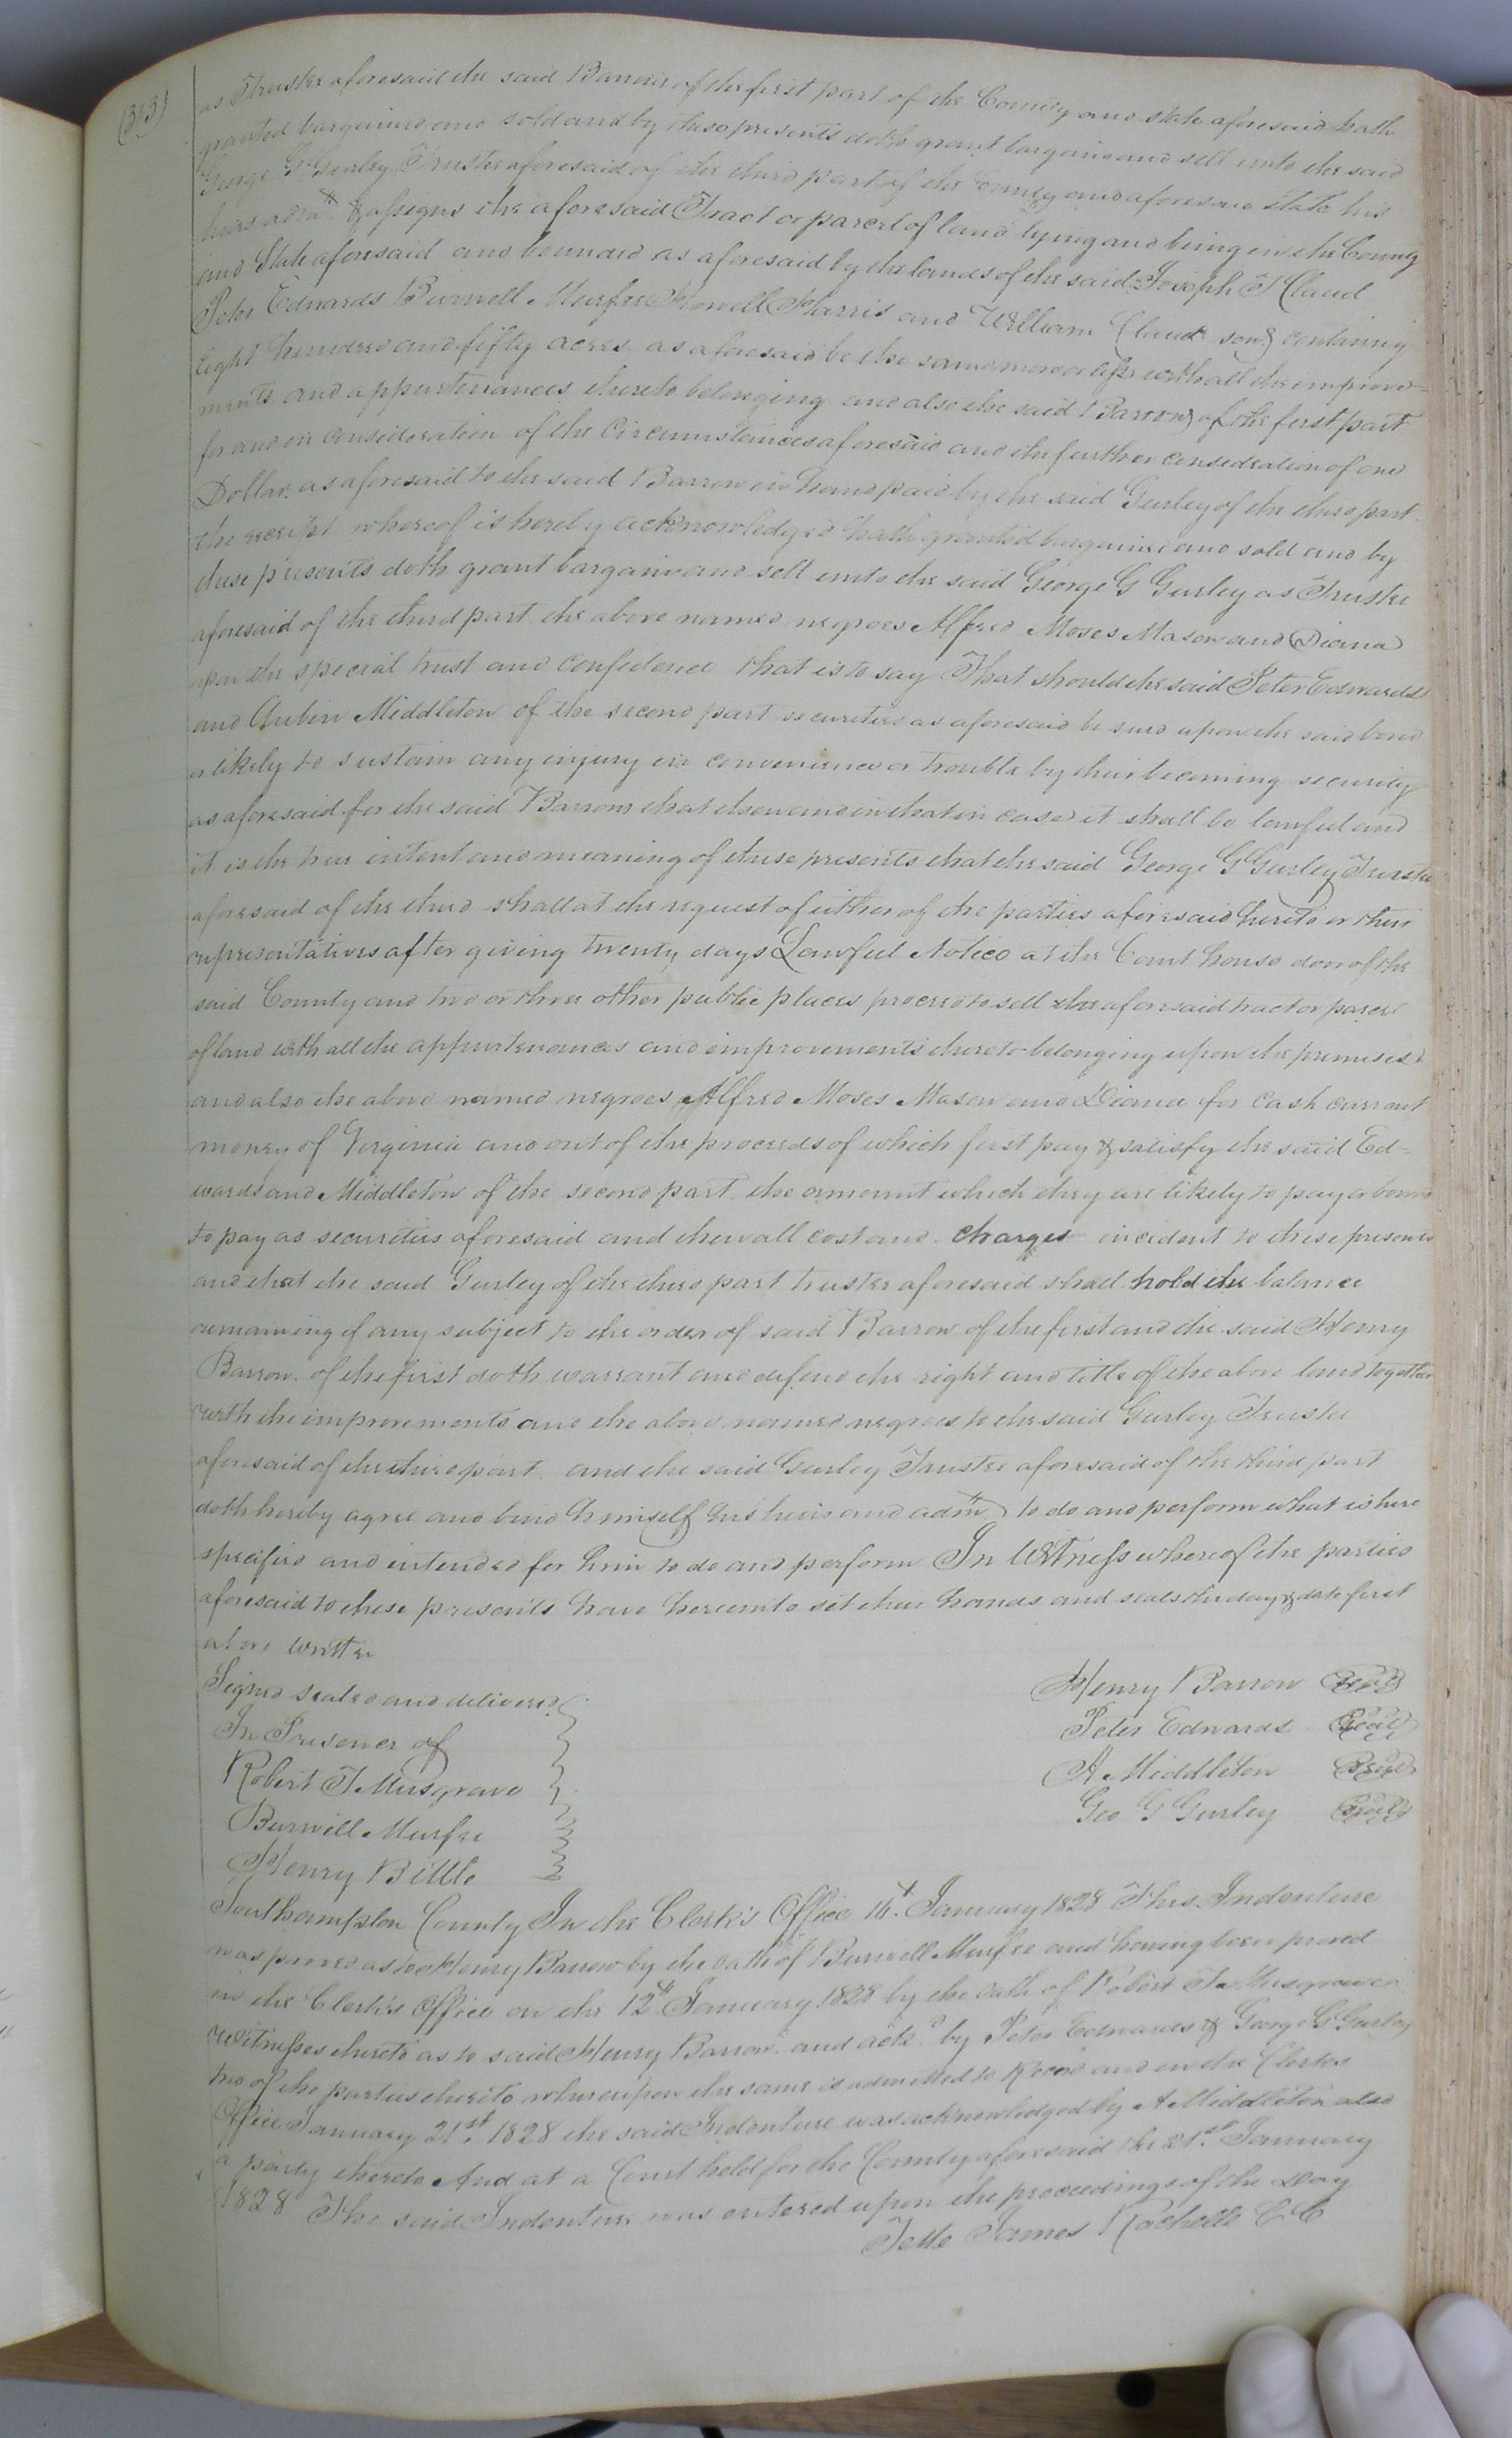 (313)
as Trustee aforesaid the said Barrow of the first part of the County and state aforesaid hath
granted bargained and sold and by these presents doth grant bargain and sell unto the said
George G Gurley Trustee aforesaid of the third part of the County and aforesaid State his
heirs admrs & assigns the aforesaid Tract or parcel of land lying and being in the County
and State aforesaid and bounded as aforesaid by the lands of the said Joseph T Claud
Peter Edwards Burwell Murfee Howell Harris and William Claud senr containing
Eight hundred and fifty acres as aforesaid be the same more or less with all the improve=
ments and appurtenances thereto belonging and also the said Barrow of the first part
for and in consideration of the Circumstances aforesaid and the further consideration of one
Dollar as aforesaid to the said Barrow in hand paid by the said Gurley of the third part
the receipt whereof is hereby acknowledged hath granted bargained and sold and by
these presents doth grant bargain and sell unto the said George G Gurley as Trustee
aforesaid of the third part the above named negroes Alfred Moses Mason and Diana
upon the special trust and confidence that is to say That should the said Peter Edwards
and Aubin Middleton of the second part securities as aforesaid be sued upon the said bond
or likely to sustain any injury in convenience or trouble by their becoming security
as aforesaid for the said Barrow that then and in that in case it shall be lawful and
it is the true intent and meaning of these presents that the said George G Gurley Trustee
aforesaid of the third shall at the request of either of the parties aforesaid hereto or their
representatives after giving twenty days Lawful Notice at the Court house door of the
said County and two or three other public places proceed to sell the aforesaid tract or parcel
of land with all the appurtenances and improvements thereto belonging upon the premises
and also the above named negroes Alfred Moses Mason and Diana for Cash current
money of Virginia and out of the proceeds of which first pay & satisfy the said Ed=
wards and Middleton of the second part the amount which they are likely to pay or bound
to pay as securities aforesaid and then all cost and charges incident to these presents
and that the said Gurley of the third part trustee aforesaid shall hold the balance
remaining if any subject to the order of said Barrow of the first and the said Henry
Barrow of the first doth warrant and defend the right and title of the above land together
with the improvements and the above named negroes to the said Gurley Trustee
aforesaid of the third part and the said Gurley Trustee aforesaid of the third part
doth hereby agree and bind himself his heirs and admrs to do and perform what is here
specified and intended for him to do and perform In Witness whereof the parties
aforesaid to these presents have hereunto set their hands and seals the day & date first
above written
Signed sealed and delivered
In Presence of
Robert T Musgrave
Burwell Murfee
Henry Bittle
Henry Barrow Seal
Peter Edwards Seal
A Middleton Seal
Geo G Gurley Seal
Southampton County In the Clerk's Office January 1828 This Indenture
was proved as to Henry Barrow by the oath of Burwell Murfee and having been proved
in the Clerk's Office on the 12th January 1828 by the oath of Robert T Musgrave
Witnesses thereto as to said Henry Barrow and ackd by Peter Edwards & George G Gurley
two of the parties thereto whereupon the same is admitted to Record and in the Clerks
Office January 21st 1828 the said Indenture was acknowledged by A Middleton also
a party thereto And at a Court held for the County aforesaid the 21st January
1828 The said Indenture was entered upon the proceedings of the Day
Teste James Rochelle C C